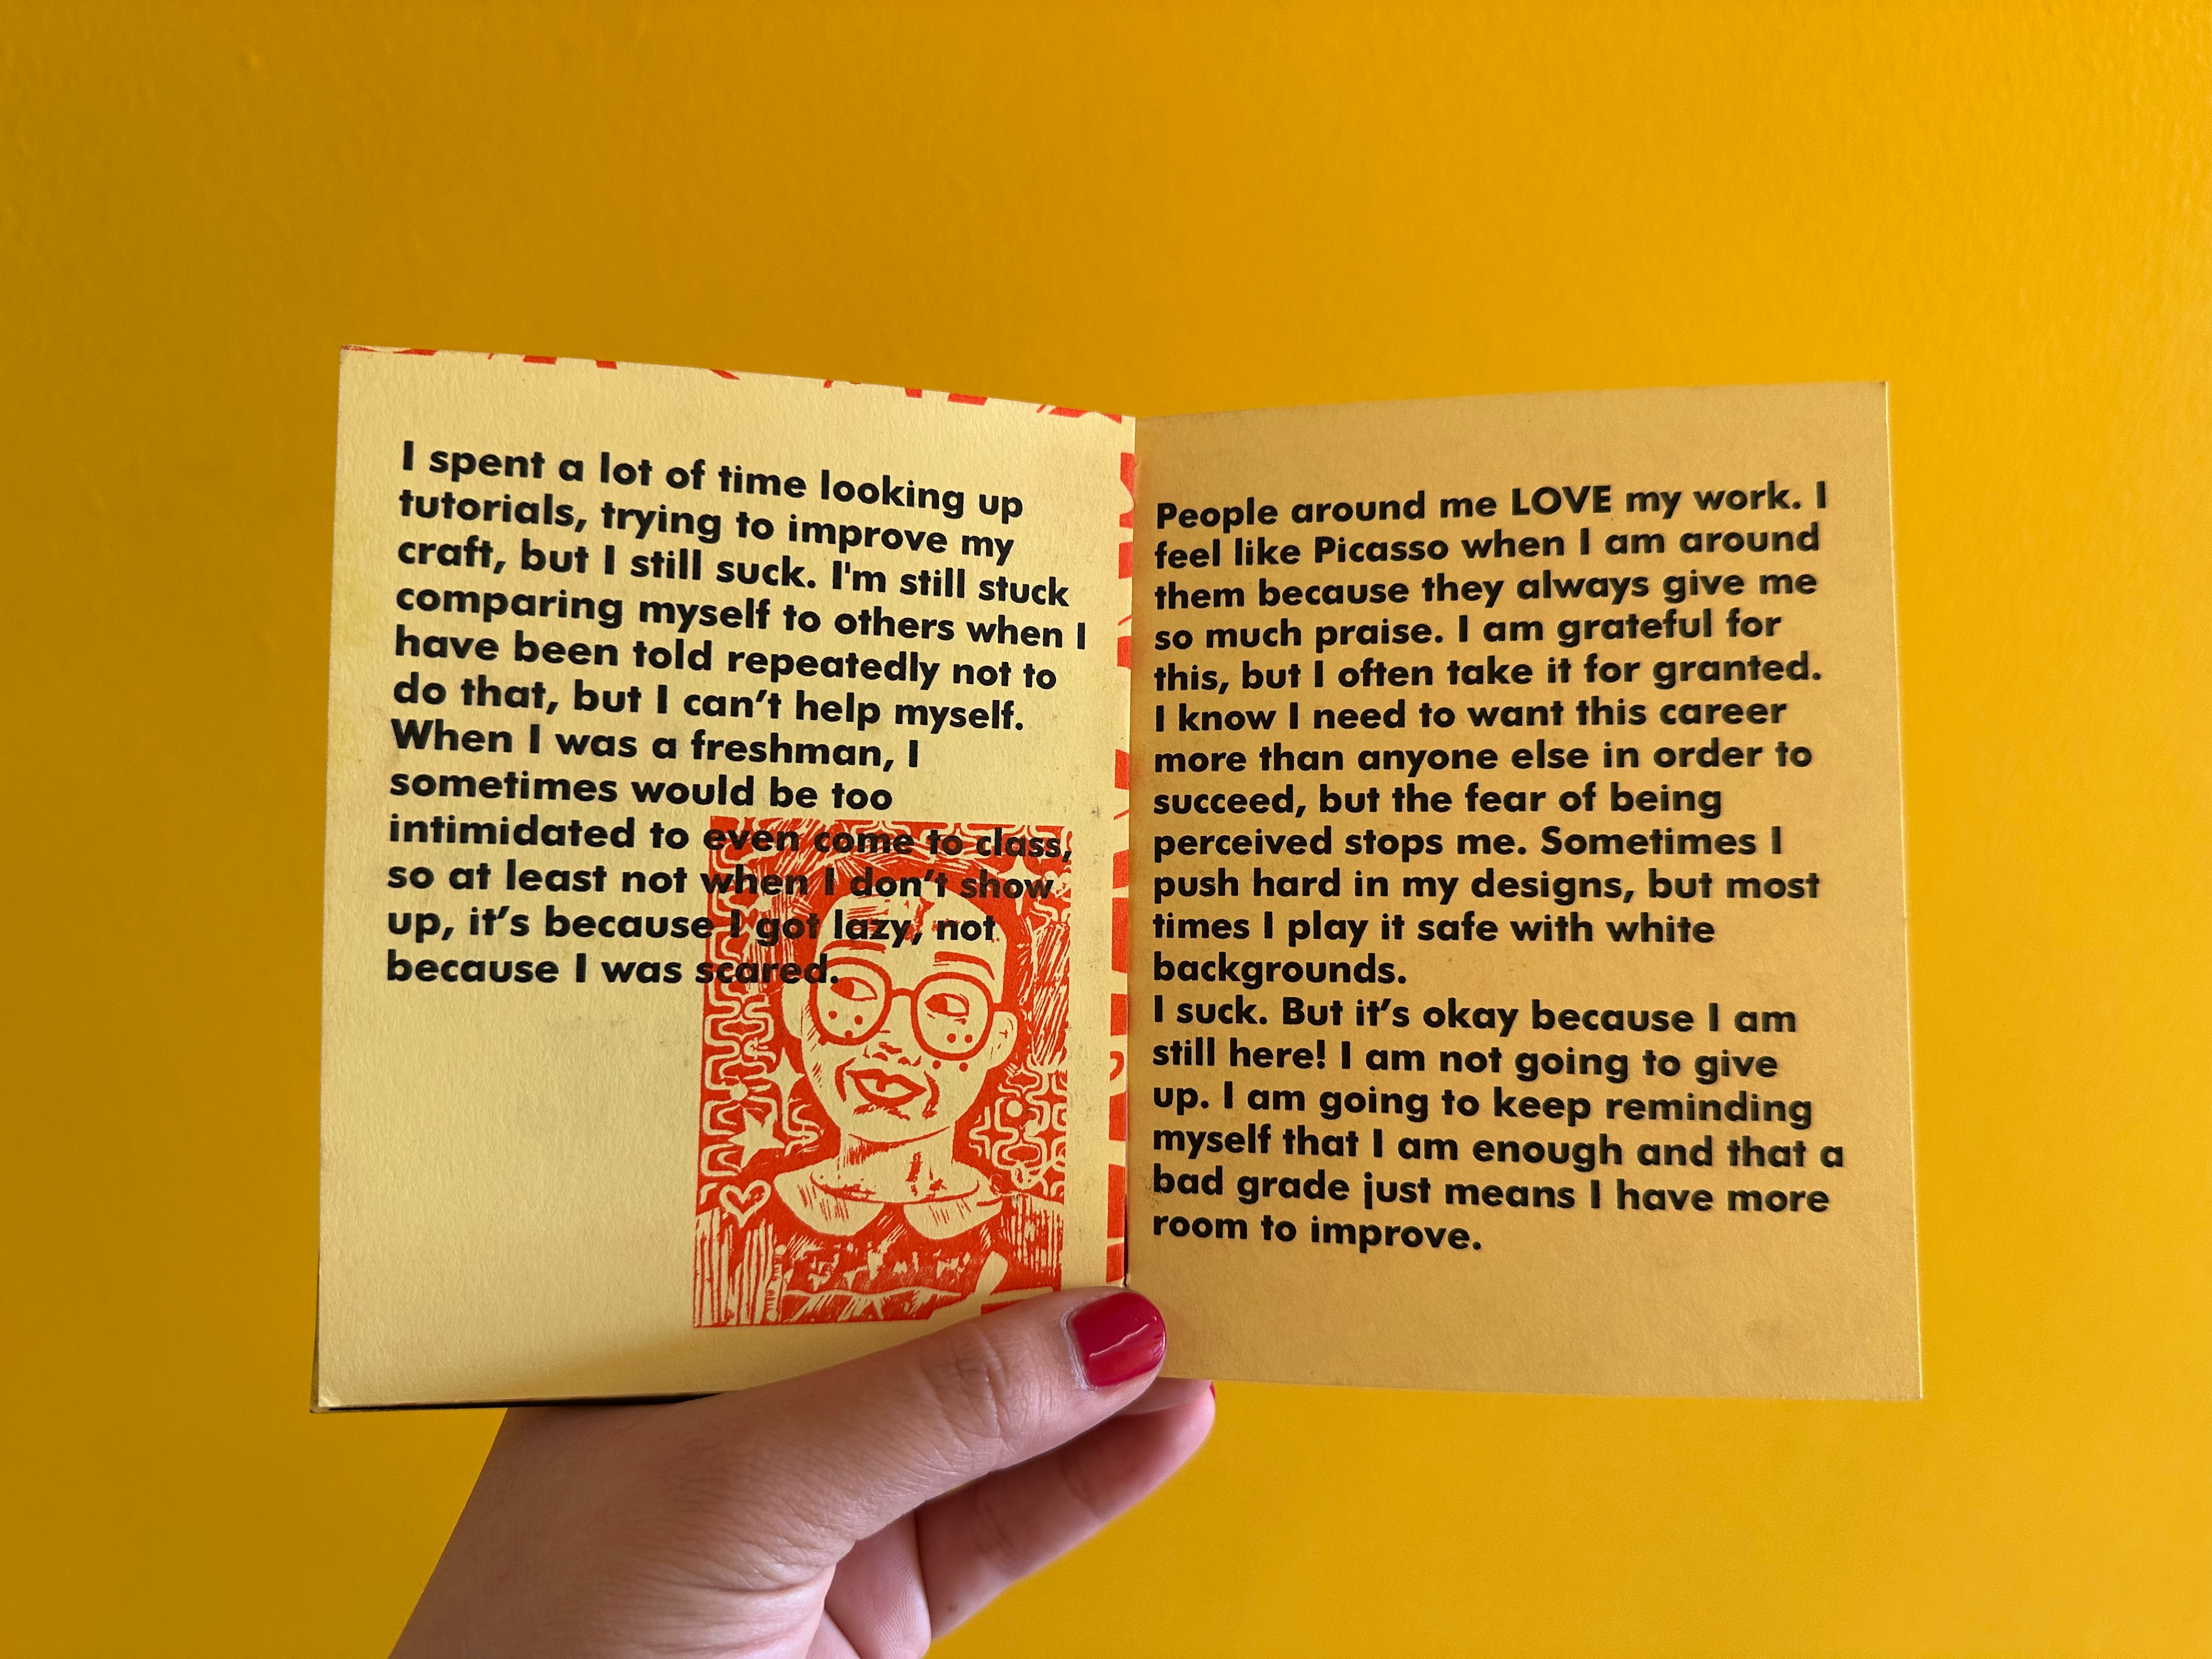 I spent a lot of time looking up
tutorials, trying to improve my
craft, but I still suck. I'm still stuck
comparing myself to others when I
have been told repeatedly not to
do that, but I can’t help myself.
When I was a freshman, I
sometimes would be too
intimidated to even come to class,
so at least not when I don’t show
up, it’s because I got lazy, not
because I was scared.
People around me LOVE my work. I
feel like Picasso when I am around
them because they always give me
so much praise. I am grateful for
this, but I often take it for granted.
I know I need to want this career
more than anyone else in order to
succeed, but the fear of being
perceived stops me. Sometimes I
push hard in my designs, but most
times I play it safe with white
backgrounds.
I suck. But it’s okay because I am
still here! I am not going to give
up. I am going to keep reminding
myself that I am enough and that a
bad grade just means I have more
room to improve.